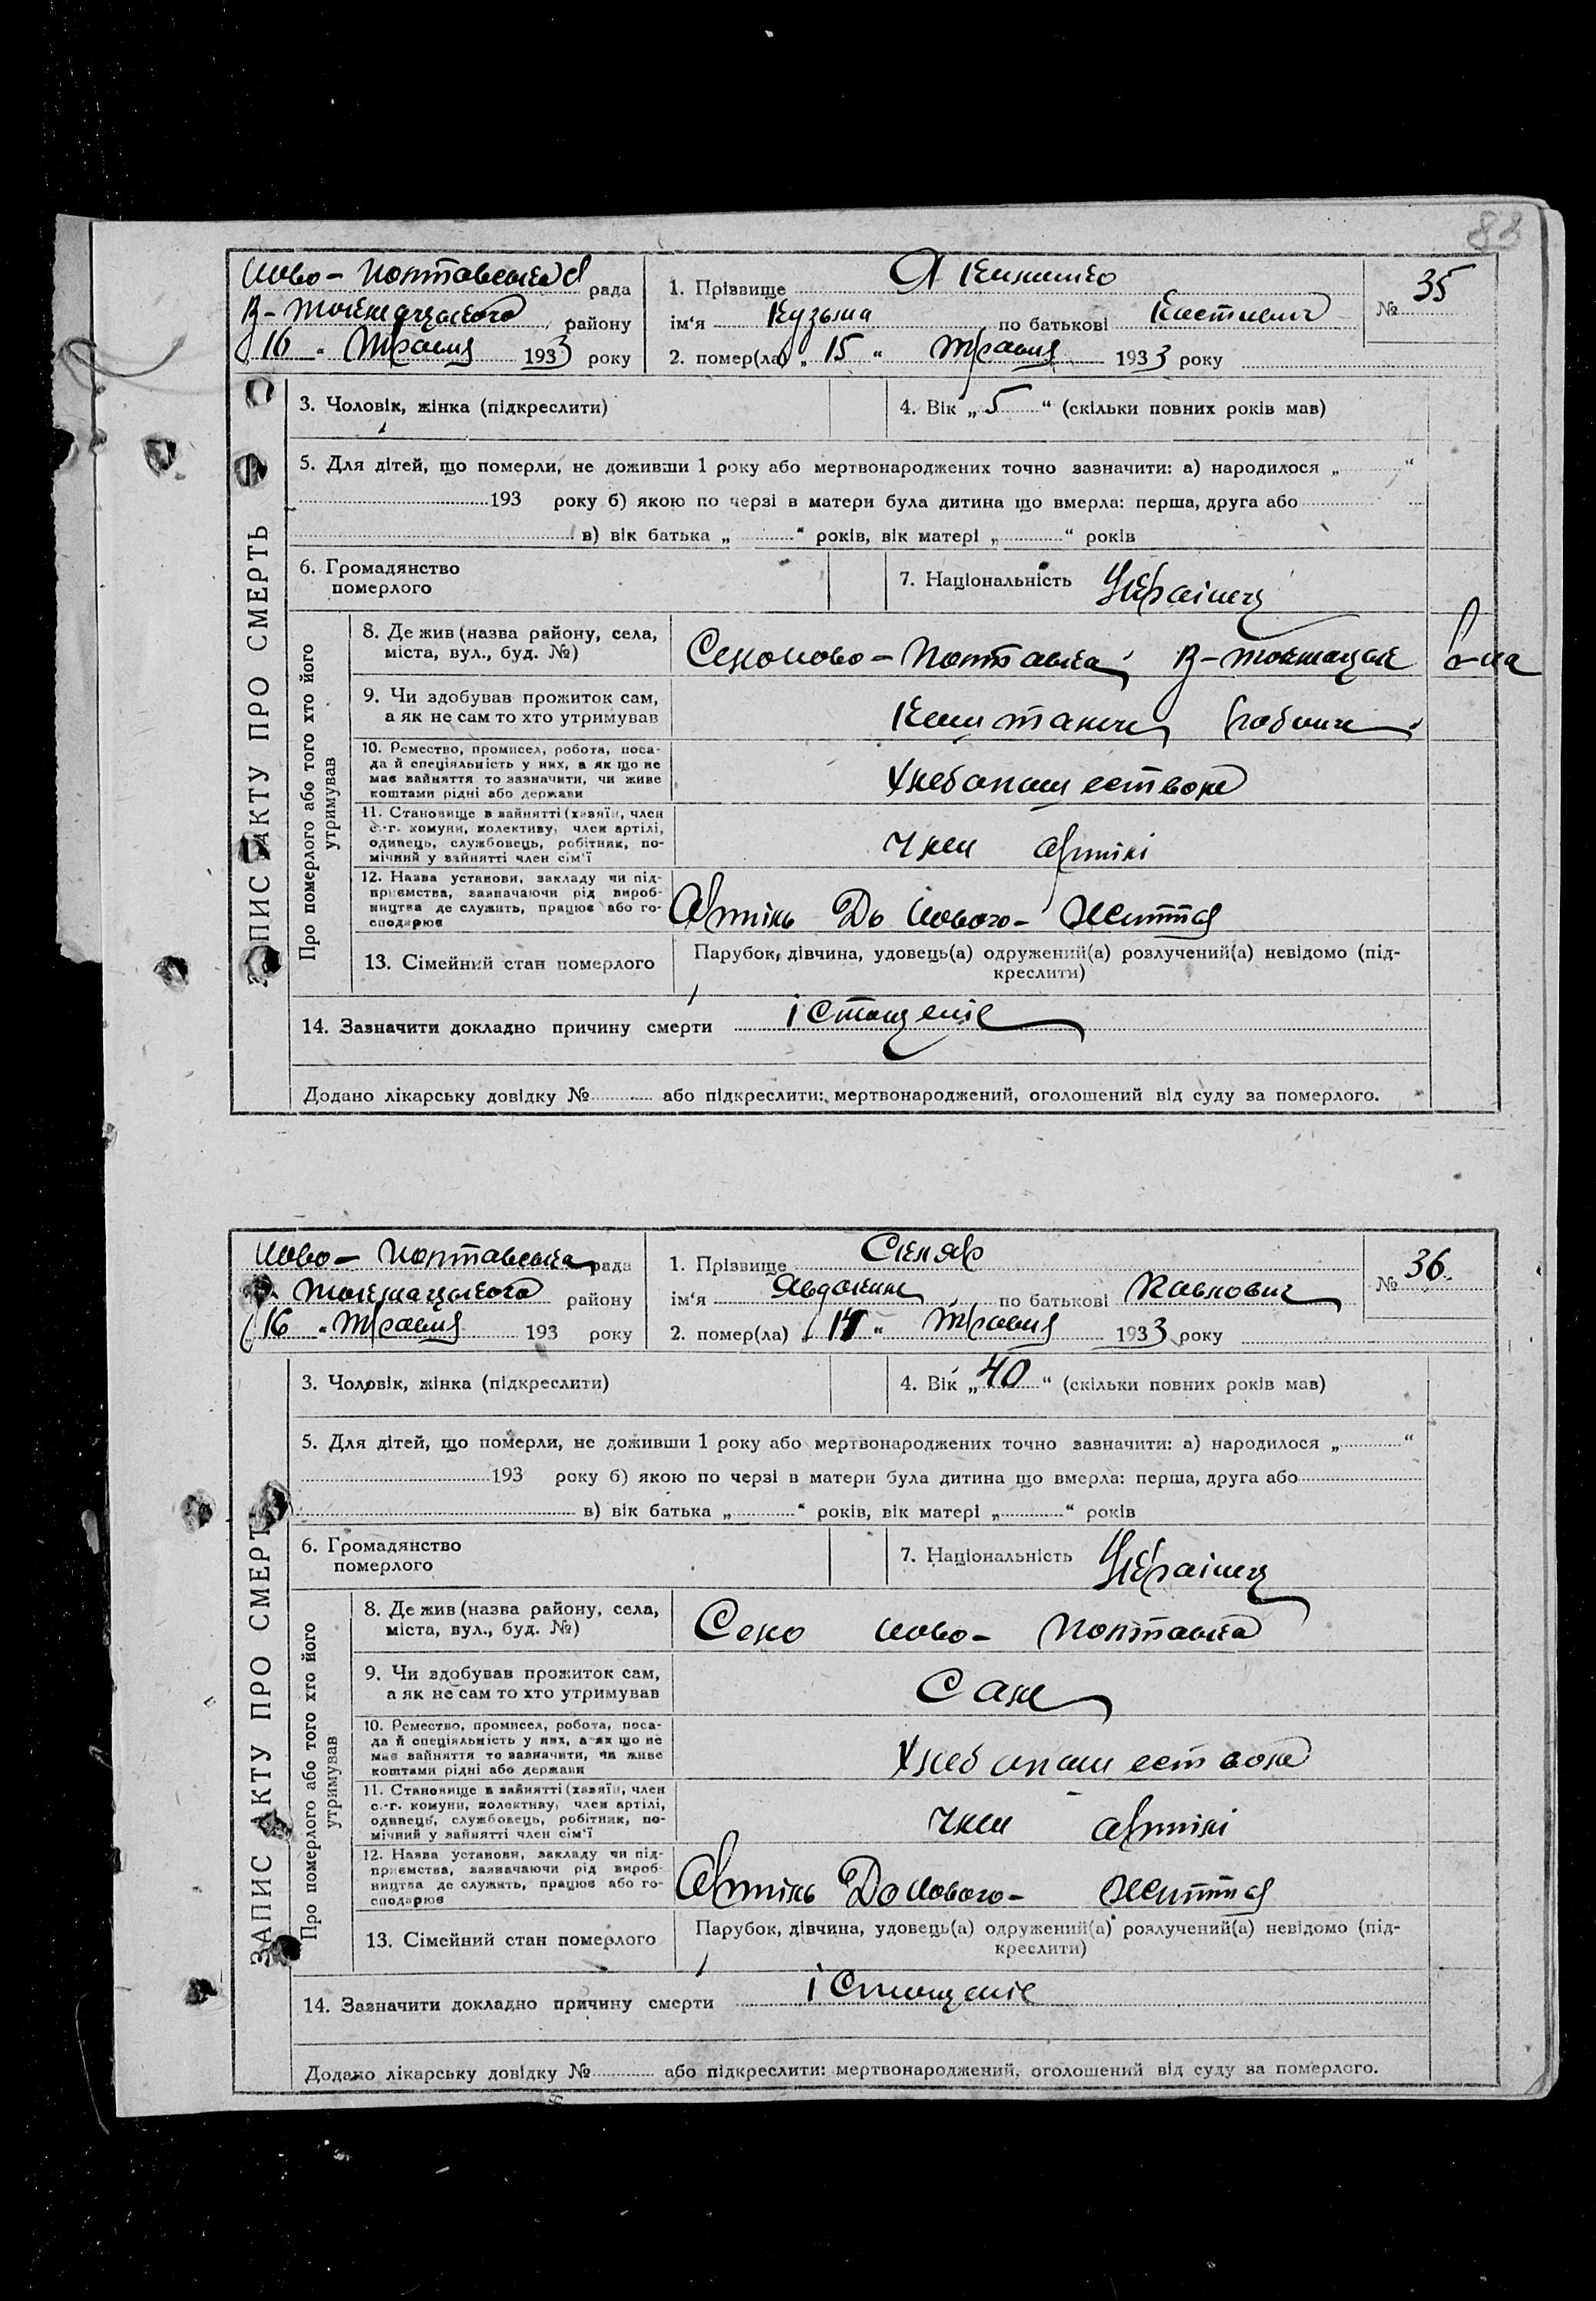 83
Ново-Полтавська рада
В-Токмацького району
"16" Травня 1933 року
1. Прізвище Якименко
ім'я Кузьма по батькові
2. помер(ла) „15" Травня 1933 року
№ 35
3. Чоловік, жінка (підкреслити)
4. Вік „5" (скільки повних років мав)
5. Для дітей, що померли, не доживши 1 року або мертвонароджених точно зазначити: а) народилося „ "
193 року б) якою по черзі в матери була дитина що вмерла: перша, друга або
в) вік батька „ " років, вік матері „ " років
6. Громадянство
померлого
7. Національність Українец
ЗАПИС АКТУ ПРО СМЕРТЬ
Про померлого або того хто його
утримував
8. Де жив (назва району, села,
міста, вул., буд. №)
Село Ново-Полтавка В-Токмацьк р-на
9. Чи здобував прожиток сам,
а як не сам то хто утримував
10. Ремество, промисел, робота, поса-
да й спеціяльність у них, а як що не
має вайняття то зазначити, чи живе
коштами рідні або держави
Хлебопашество
11. Становище в вайнятті (хазяїн, член
с.-г. комуни, колективу, член артілі,
одинець, службовець, робітник, по-
мічний у вайнятті член сім'ї
член артілі
12. Назва установи, закладу чи під-
приємства, вазначаючи рід вироб-
ництва де служить, працює або го-
сподарює
Артіль До Нового-Життя
13. Сімейний стан померлого
Парубок, дівчина, удовець(а) одружений(а) розлучений(а) невідомо (під-
креслити)
14. Зазначити докладно причину смерти істощеніє
Додано лікарську довідку № або підкреслити: мертвонароджений, оголошений від суду за померлого.
Ново-Полтавська рада
Токмацького району
"16" Травня 193 року
1. Прізвище Скляр
ім'я Явдоким по батькові Павлович
2. помер(ла) „ " Травня 1933 року
№ 36
3. Чоловік, жінка (підкреслити)
4. Вік „40" (скільки повних років мав)
5. Для дітей, що померли, не доживши 1 року або мертвонароджених точно зазначити: а) народилося „ "
193 року б) якою по черзі в матери була дитина що вмерла: перша, друга або
в) вік батька „ " років, вік матері „ " років
6. Громадянство
померлого
7. Національність Українец
ЗАПИС АКТУ ПРО СМЕРТЬ
Про померлого або того хто його
утримував
8. Де жив (назва району, села,
міста, вул., буд. №)
Село Ново-Полтавка
9. Чи здобував прожиток сам,
а як не сам то хто утримував
Сам
10. Ремество, промисел, робота, поса-
да й спеціяльність у них, а як що не
має вайняття то вазначити, чи живе
коштами рідні або держави
Хлебопашество
11. Становище в вайнятті (хазяїн, член
с.-г. комуни, колективу, член артілі,
одинець, службовець, робітник, по-
мічний у вайнятті член сім'ї
член артілі
12. Назва установи, закладу чи під-
приємства, вазначаючи рід вироб-
ництва де служить, працює або го-
сподарює
Артіль До Нового-Життя
13. Сімейний стан померлого
Парубок, дівчина, удовець(а) одружений(а) розлучений(а) невідомо (під-
креслити)
14. Зазначити докладно причину смерти істощеніє
Додано лікарську довідку № або підкреслити: мертвонароджений, оголошений від суду за померлого.